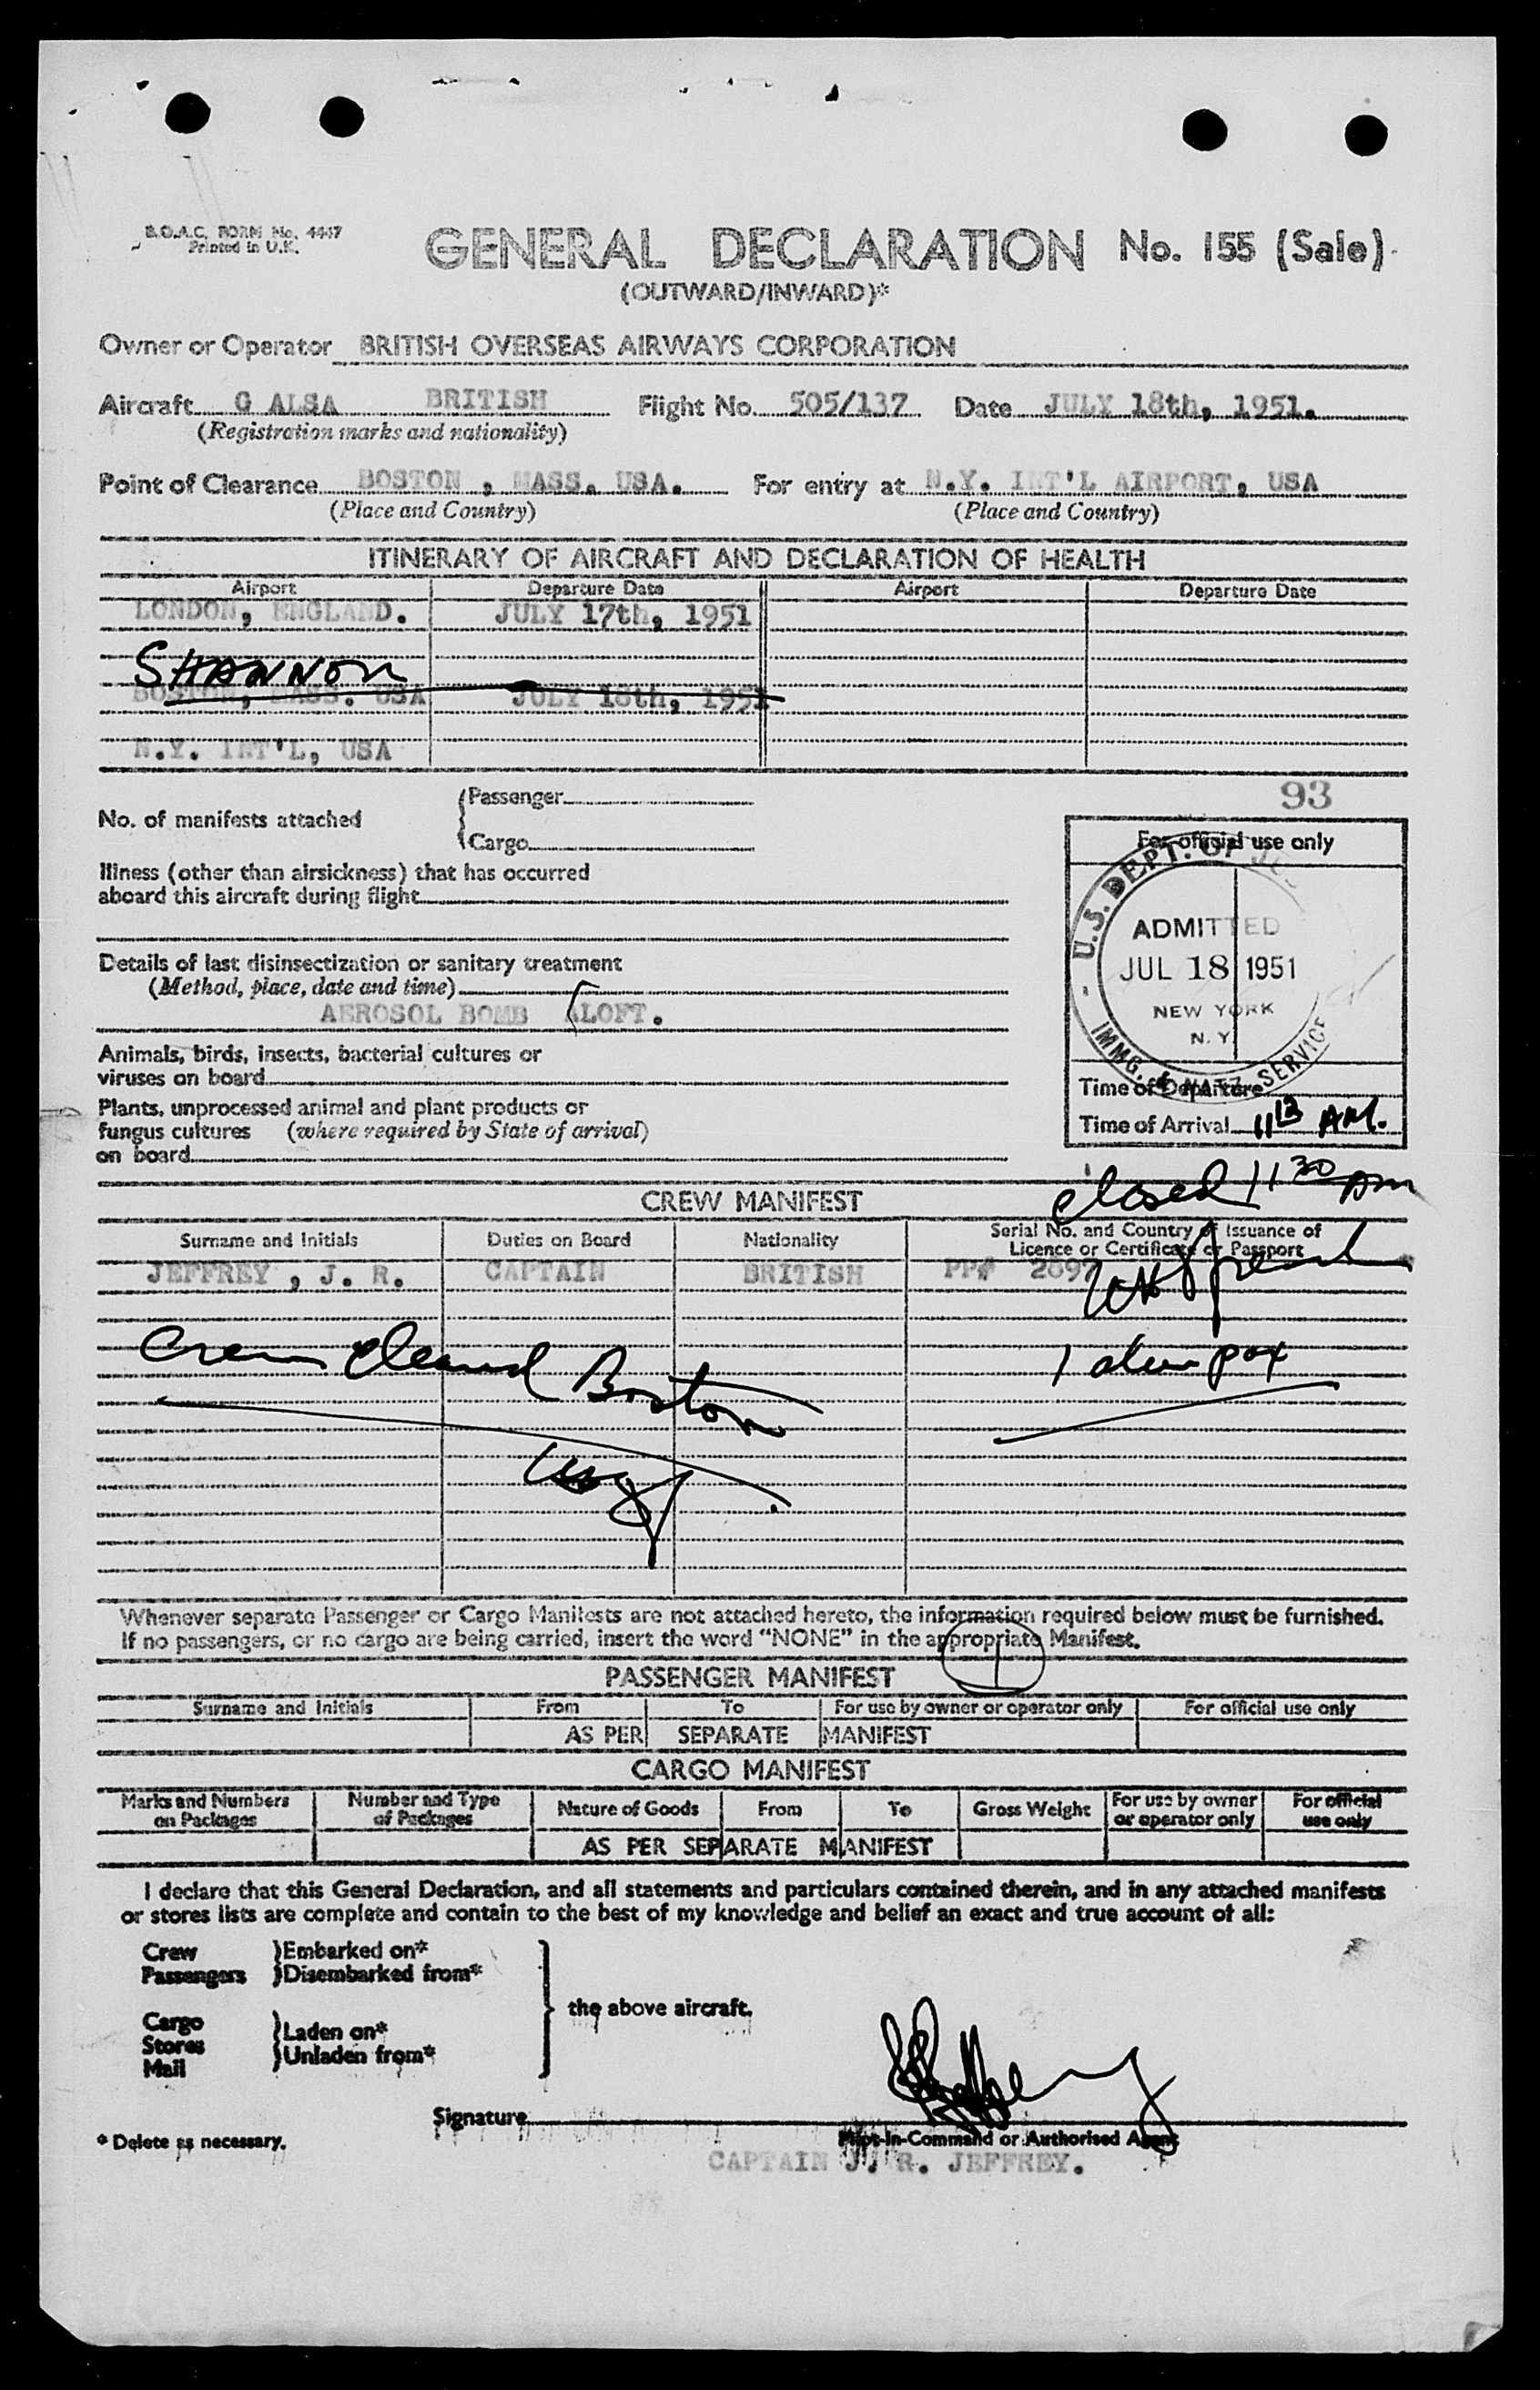 B.O.A.C. FORM No. 4447
Printed in U.K.
GENERAL DECLARATION No. 155 (Sale)
(OUTWARD/INWARD)*
Owner or Operator BRITISH OVERSEAS AIRWAYS CORPORATION
Aircraft G ALSA BRITISH Flight No. 505/137 Date JULY 18th, 1951.
(Registration marks and nationality)
Point of Clearance BOSTON , MASS. USA. For entry at N.Y. INT'L AIRPORT, USA
(Place and Country) (Place and Country)
ITINERARY OF AIRCRAFT AND DECLARATION OF HEALTH
Airport Departure Date Airport Departure Date
LONDON, ENGLAND. JULY 17th, 1951
SHANNON
BOSTON, MASS. USA JULY 18th, 1951
N.Y. INT'L, USA
93
No. of manifests attached
Passenger
Cargo
For official use only
U.S. DEPT. OF
ADMITTED
JUL 18 1951
NEW YORK
N. Y.
IMMG. & NATZ. SERVICE
Time of Departure
Time of Arrival 11 13 AM.
Illness (other than airsickness) that has occurred
aboard this aircraft during flight
Details of last disinsectization or sanitary treatment
(Method, place, date and time)
AEROSOL BOMB ALOFT.
Animals, birds, insects, bacterial cultures or
viruses on board
Plants, unprocessed animal and plant products or
fungus cultures (where required by State of arrival)
on board
closed 11 30 pm
CREW MANIFEST
Surname and Initials Duties on Board Nationality Serial No. and Country of Issuance of
Licence or Certificate or Passport
JEFFREY , J. R. CAPTAIN BRITISH PP# 2097
Crew Cleared Boston
1 alien pax
Whenever separate Passenger or Cargo Manifests are not attached hereto, the information required below must be furnished.
If no passengers, or no cargo are being carried, insert the word "NONE" in the appropriate Manifest.
1
PASSENGER MANIFEST
Surname and Initials From To For use by owner or operator only For official use only
AS PER SEPARATE MANIFEST
CARGO MANIFEST
Marks and Numbers on Packages Number and Type of Packages Nature of Goods From To Gross Weight For use by owner or operator only For official use only
AS PER SEPARATE MANIFEST
I declare that this General Declaration, and all statements and particulars contained therein, and in any attached manifests
or stores lists are complete and contain to the best of my knowledge and belief an exact and true account of all:
Crew Embarked on*
Passengers Disembarked from*
the above aircraft.
Cargo
Stores
Mail
Laden on*
Unladen from*
Signature
* Delete as necessary.
Pilot-in-Command or Authorised Agent
CAPTAIN J. R. JEFFREY.